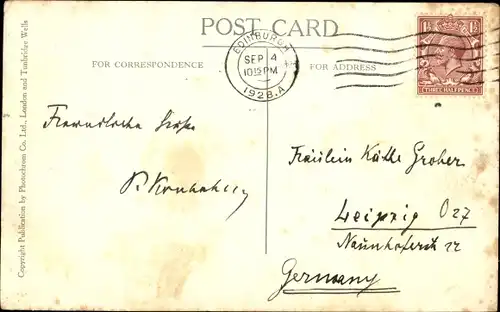 POST CARD
FOR CORRESPONDENCE
FOR ADDRESS
EDINBURGH
SEP 4
1015PM
1928.A
THREE HALFPENCE
Copyright Publication by Photochrom Co. Ltd., London and Tunbridge Wells
Freundliche Grüße
Fräulein Käthe Groher
Leipzig O27
Naunhoferstr 22
Germany